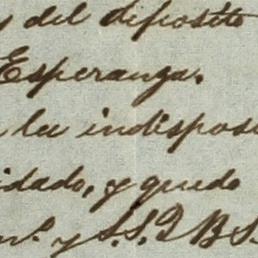 y del deposito
Esperanza.
la indisposi
idado, y quedo
m.º y S.S.Q B S.